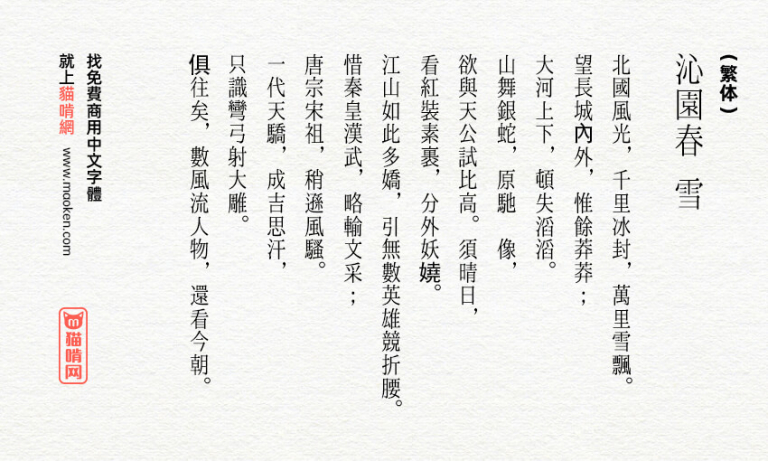 (繁体)
沁園春 雪
北國風光，千里冰封，萬里雪飄。
望長城內外，惟餘莽莽；
大河上下，頓失滔滔。
山舞銀蛇，原馳 像，
欲與天公試比高。須晴日，
看紅裝素裹，分外妖嬈。
江山如此多嬌，引無數英雄競折腰。
惜秦皇漢武，略輸文采；
唐宗宋祖，稍遜風騷。
一代天驕，成吉思汗，
只識彎弓射大雕。
俱往矣，數風流人物，還看今朝。
找免費商用中文字體
就上貓啃網 www.mooken.com
貓啃网